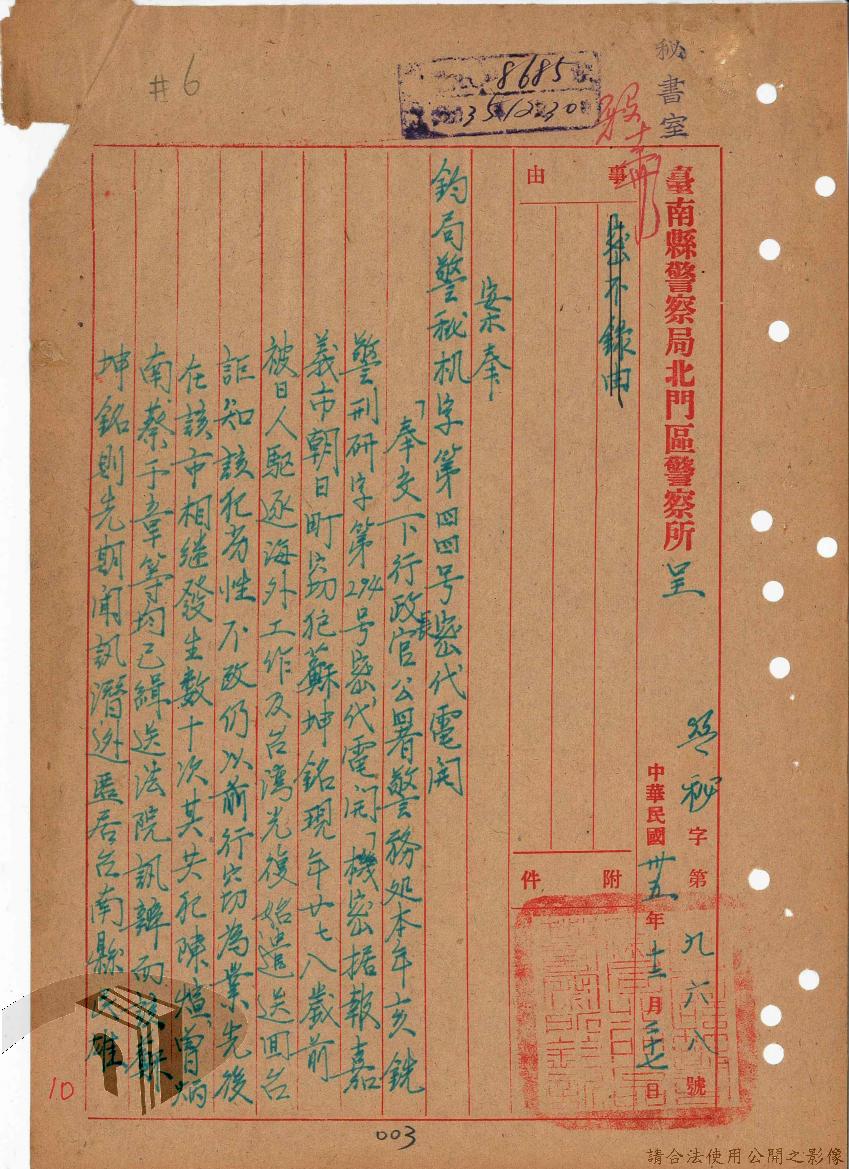 秘書室
#6
8685
351230
臺南縣警察局北門區警察所呈
秘字第九六八號
中華民國卅五年十二月二十七日
事由
密不錄由
附件
案奉
鈞局警秘机字第四四号密代電開
「奉交下行政長官公署警務処本年亥銑
警刑研字第294号密代電開「機密据報嘉
義市朝日町窃犯蘇坤銘現年廿七八歲前
被日人駆逐海外工作及台湾光復始遣送回台
詎知該犯劣性不改仍以前行窃為業先後
在該市相継發生数十次其共犯陳 曾炳
南蔡于章等均已緝送法院訊辦而該蘇
坤銘則先期聞訊潛逃匿居台南縣民雄
10
003
請合法使用公開之影像